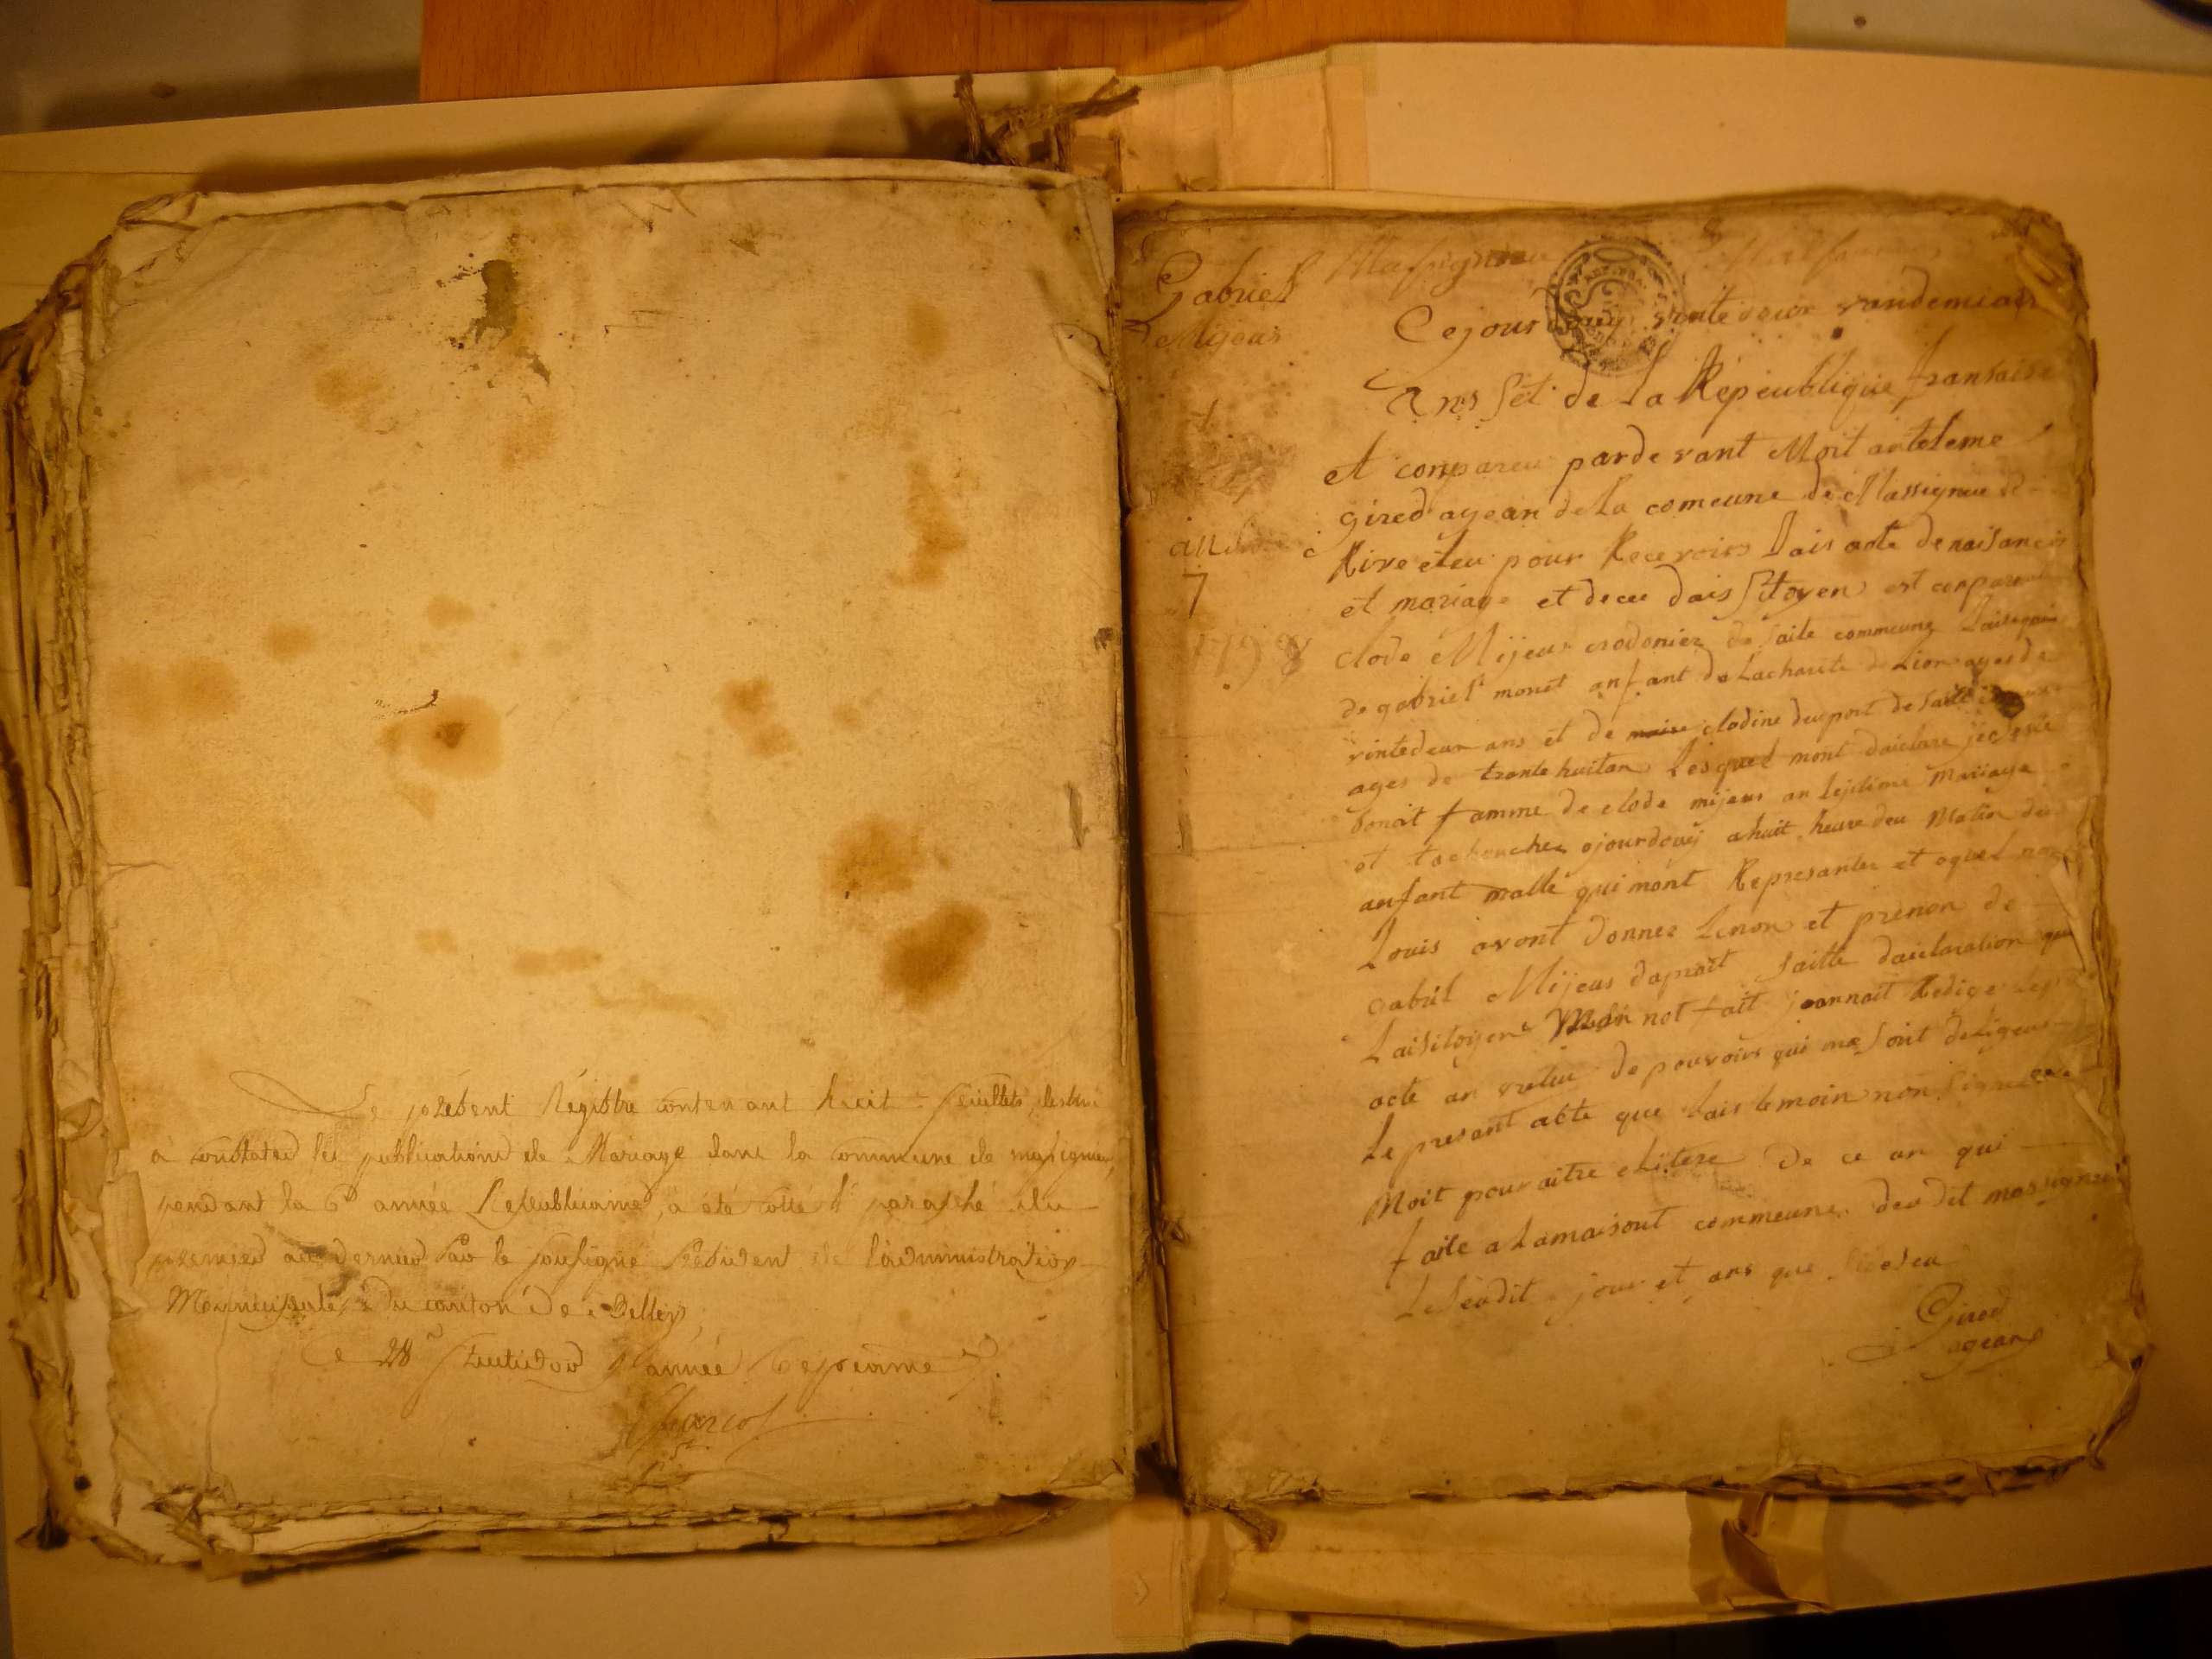 Le présent Régistre contenant huit feuillets destiné
a constater les publications de Mariage dans la commune de massignieu,
pendant la 6e année Republicaine, a été cotté & paraphé du
premier au dernier Par le soussigné Président de l'administration
Municipale du canton De Belley,
Ce 28 fructidor année
Gabriel
Mijeas
an
7
1798
Massignieu
Cejourdouy vinte deux vandemiair
Ans set de La Répeublique fransaise
et compareu parde vant Moit anteleme
gired agean de La comeune de Massigneu de
Rive eleu pour Recevoirs Dais acte de naisances
et mariage et decee dais Sitoyen est comparu
clode Mijeas cordonier de saite commeune Laisigné
de gabriel monet anfant de Lacharite de Lion ages de
vintedeux ans et de clodine deuport de saite
ages de trante huitan Lesquel mont daiclare
benoit famme de clode mijeas an Lejitime Mariage
et ojourdouy ahuit heure deu Matin deu
anfant malle qui mont Represanter et oquel nous
Louis avont donner Lenon et prenon de
Gabriel Mijeas daprait saitte daiclaration que
Laisitoyen not fait jeannait Rediger
acte an verteu de pouvoirs qui me sont deligeus
Le presant acte que Lais temoin non signer
Moit pour aitre eLitere de ce an qui
faite a Lamaisont commeune deudit massignieu
Les jour et ans que
Gired
agean